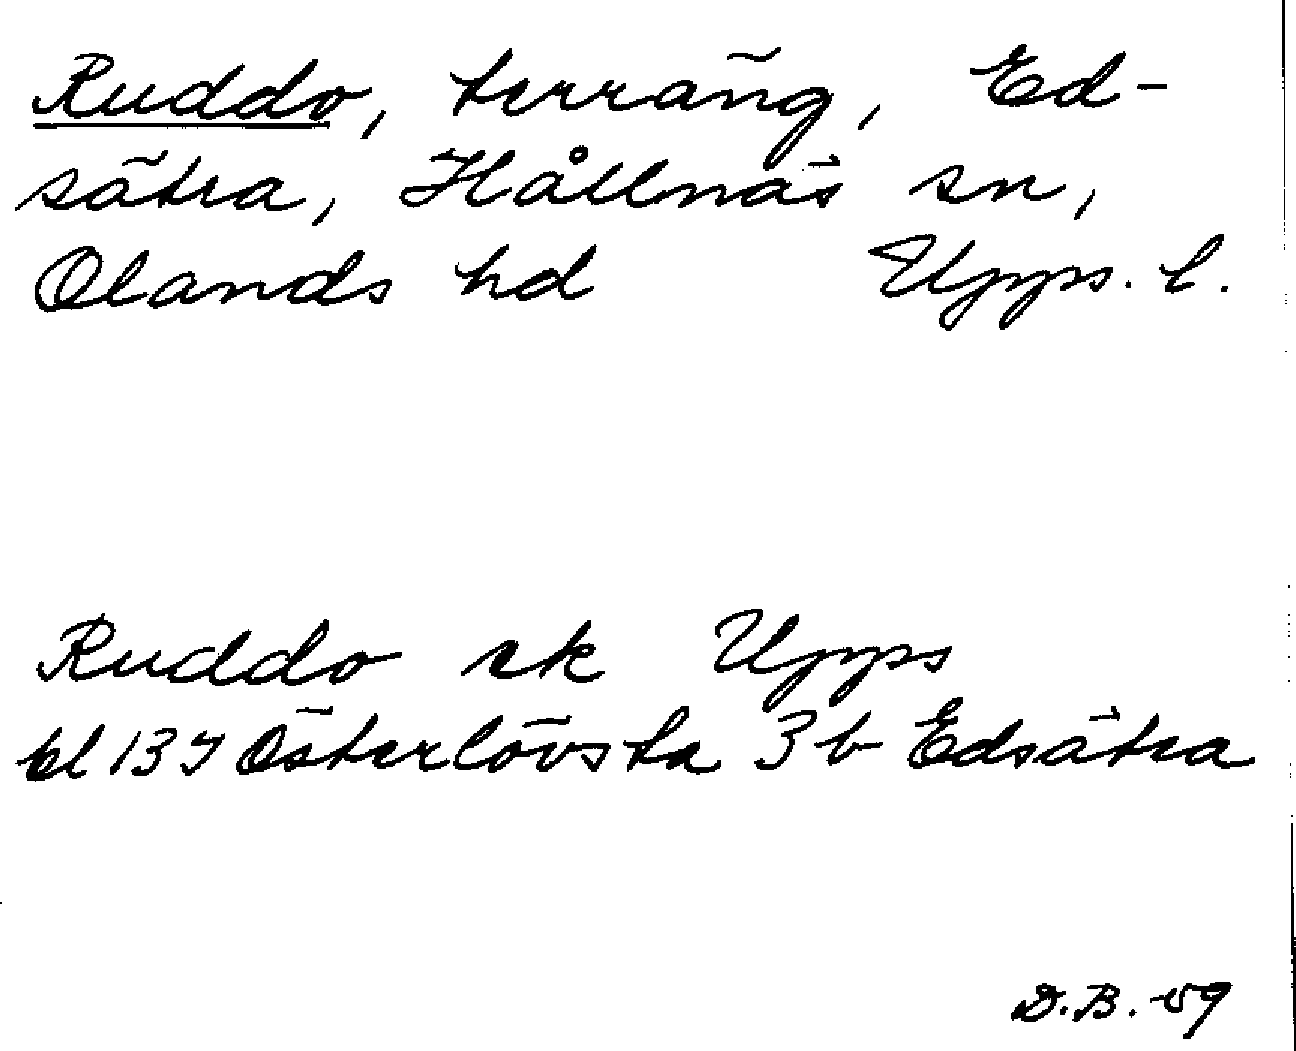 Ruddo, terräng, Ed-
sätra, Hållnäs sn,
Olands hd Upps. l.
Ruddo ek Upps
bl 137 Österlövsta 3 b Edsätra
D.B. -59